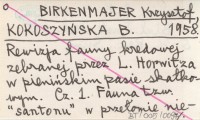 BIRKENMAJER Krzysztof,
KOKOSZYŃSKA B. 1958.
Rewizja fauny kredowej
zebranej przez L. Horwitza
w pienińskim pasie skałko-
wym. Cz. 1. Fauna tzw.
"santonu" w przełomie nie-